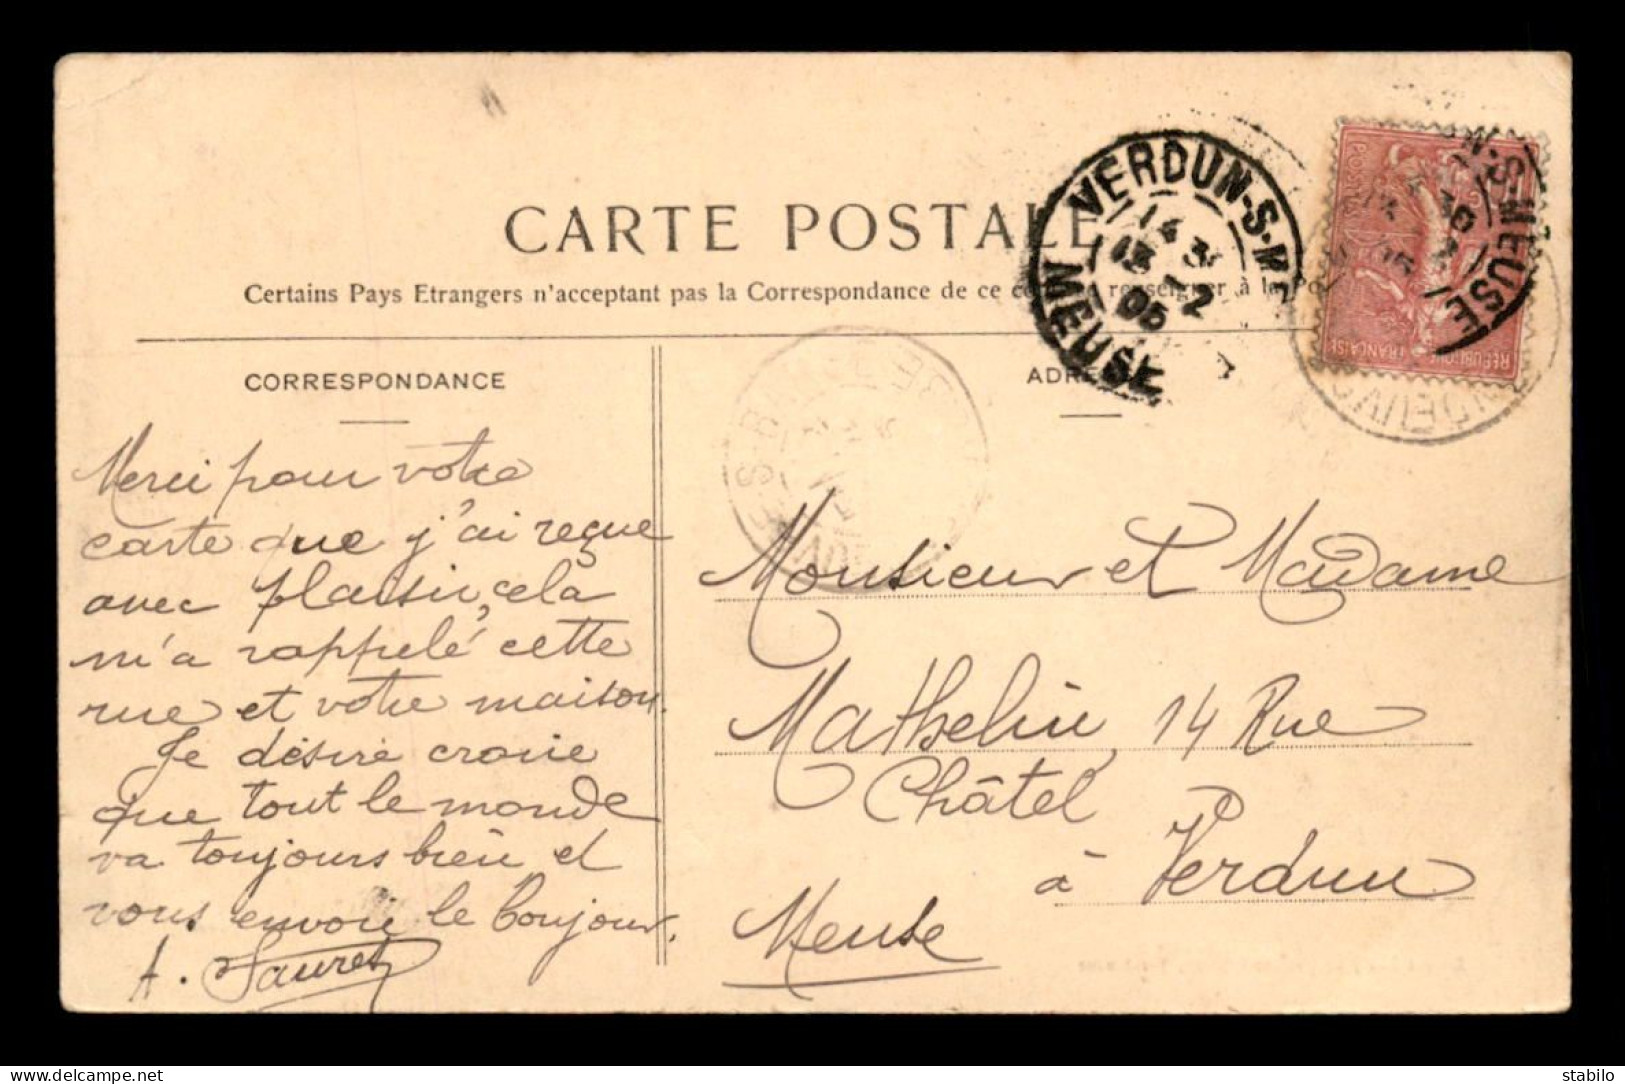 CARTE POSTALE
Certains Pays Etrangers n'acceptant pas la Correspondance de ce renseigner à la
CORRESPONDANCE
Merci pour votre
carte que j'ai reçue
avec plaisir, cela
m'a rappelé cette
rue et votre maison.
Je désire croire
que tout le monde
va toujours bien et
vous envoie le bonjour.
A. Sauret
VERDUN-S-ME
14 3
13 - 2
05
MEUSE
N-S-MEUSE
POSTES
REPUBLIQUE FRANÇAISE
ADRE
Monsieur et Madame
Mathelin, 14 Rue
Châtel
à Verdun
Meuse
delcampe.net
stabilo